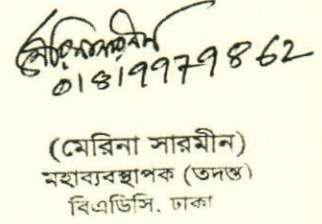 মেরিনা সারমীন
01819979862
(মেরিনা সারমীন)
মহাব্যবস্থাপক (তদন্ত)
বিএডিসি. ঢাকা